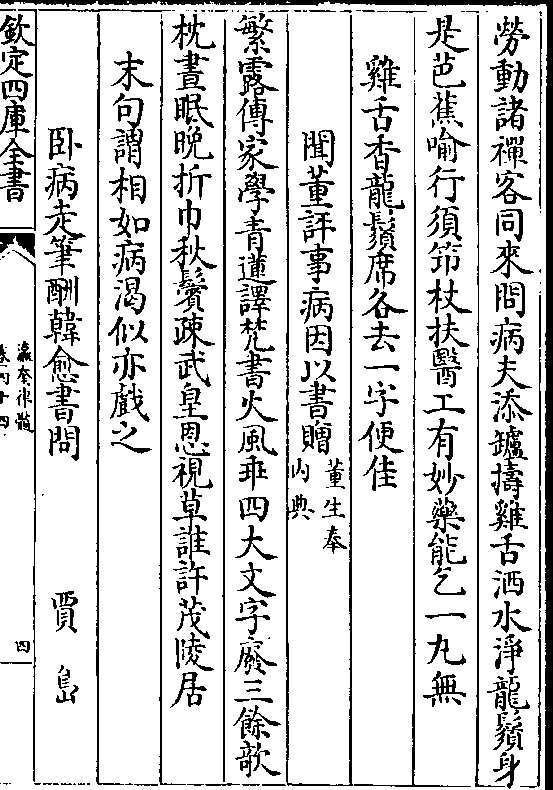 勞動諸禪客同來問病夫添罏擣雞舌洒水淨龍鬚身
是芭蕉喻行須笻杖扶醫工有妙藥能乞一丸無
雞舌香龍鬚席各去一字便佳
聞董評事病因以書贈董生奉内典
繁露傳家學青蓮譯梵書火風乖四大文字廢三餘欹
枕晝眠晩折巾秋鬢疎武皇思視草誰許茂陵居
末句謂相如病渴似亦戲之
卧病走筆酬韓愈書問
賈島
欽定四庫全書
瀛奎律髓
卷四十四
四